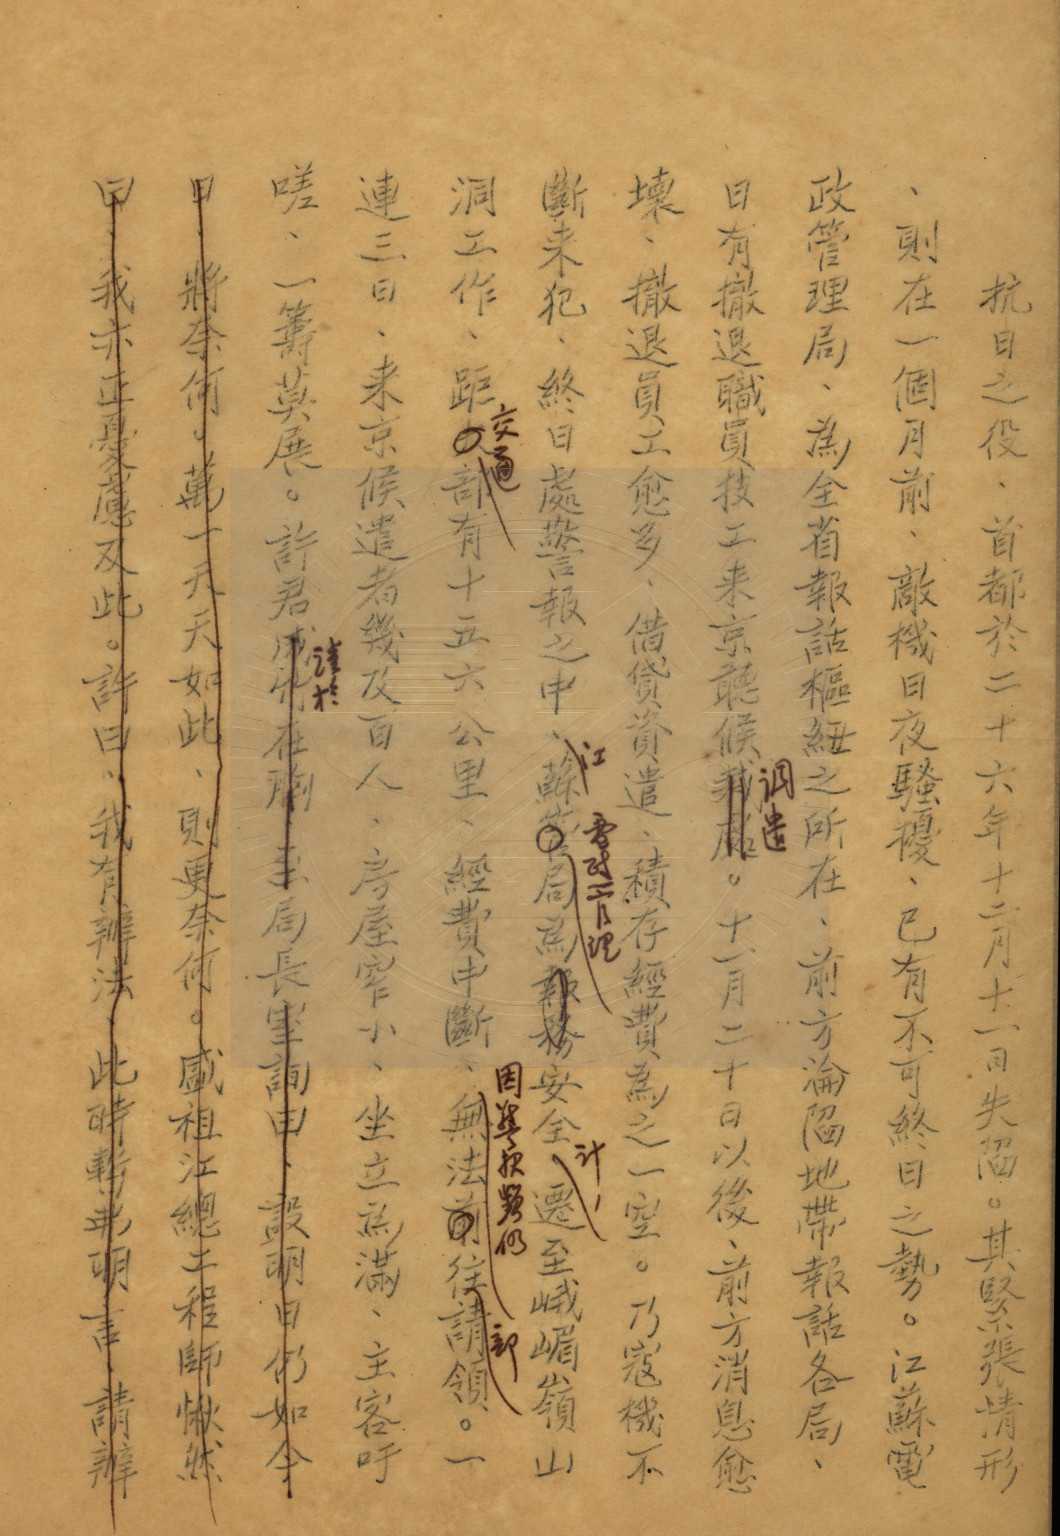 抗日之役、首都於二十六年十二月十一日失陷。其緊張情形
、則在一個月前、敵機日夜騷擾、已有不可終日之勢。江蘇電
政管理局、為全省報話樞紐之所在、前方淪陷地帶報話各局、
日有撤退職員技工来京聽候裁。十一月二十日以後、前方消息愈
調遣
壞、撤退員工愈多、借貸資遣、積存經費為之一空。乃寇機不
斷来犯、終日處警報之中、蘇管局為報務安全遷至峨嵋嶺山
江
計
洞工作、距部有十五六公里、經費中斷、無法前往請領。一
交通
部
連三日、来京候遣者幾及百人、房屋窄小、坐立為滿、主客吁
嗟、一籌莫展。許君在至局長室詢曰、設明日仍如今
日、將奈何。萬一天天如此、則更奈何。盛祖江總工程師愀然
曰、我亦正憂慮及此。許曰、我有辦法、此時暫弗明言、請辦